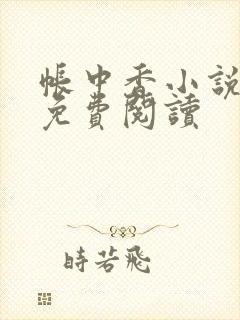 帳中香小說
免費閱讀
時若飛